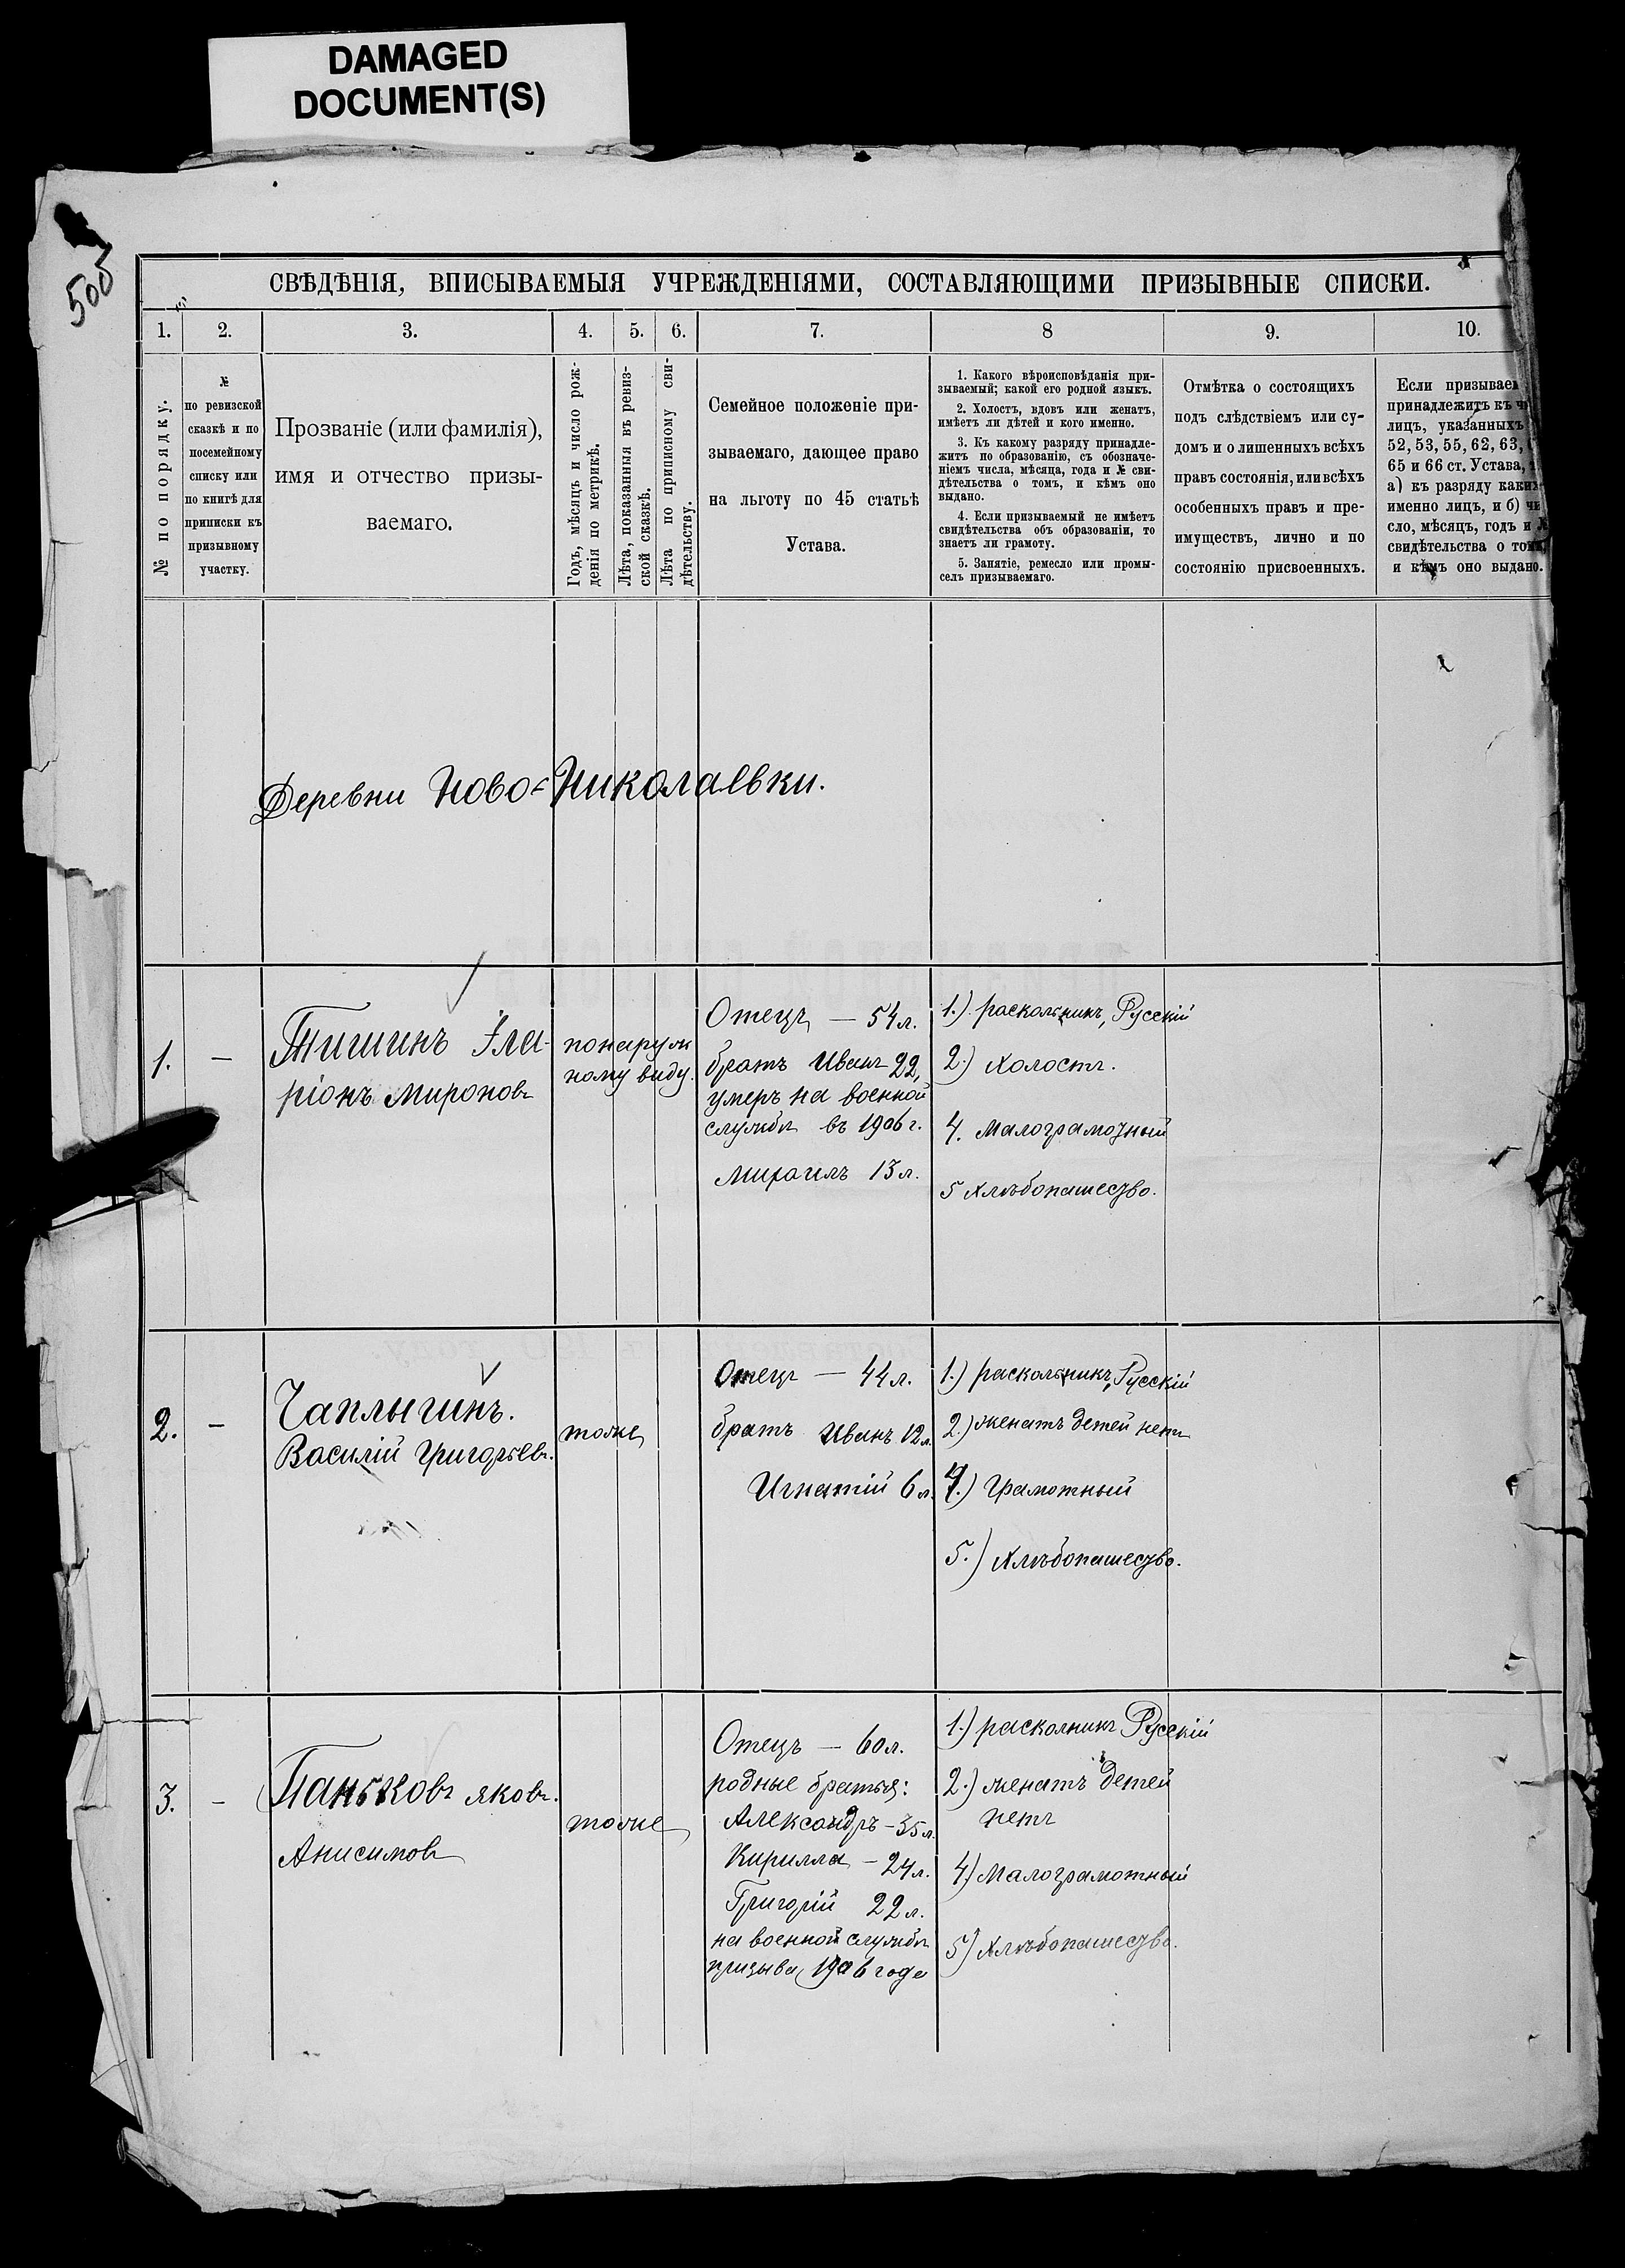 DAMAGED
DOCUMENT(S)
505
СВѢДѢНІЯ, ВПИСЫВАЕМЫЯ УЧРЕЖДЕНІЯМИ, СОСТАВЛЯЮЩИМИ ПРИЗЫВНЫЕ СПИСКИ.
1. 2. 3. 4. 5. 6. 7. 8 9. 10.
№ по порядку.
№
по ревизской
сказкѣ и по
посемейному
списку или
по книгѣ для
приписки къ
призывному
участку.
Прозваніе (или фамилія),
имя и отчество призы-
ваемаго.
Годъ, мѣсяцъ и число рож-
денія по метрикѣ.
Лѣта, показанныя въ ревиз-
ской сказкѣ.
Лѣта по приписному сви-
дѣтельству.
Семейное положеніе при-
зываемаго, дающее право
на льготу по 45 статьѣ
Устава.
1. Какого вѣроисповѣданія при-
зываемый; какой его родной языкъ.
2. Холостъ, вдовъ или женатъ,
имѣетъ ли дѣтей и кого именно.
3. Къ какому разряду принадле-
житъ по образованію, съ обозначе-
ніемъ числа, мѣсяца, года и № сви-
дѣтельства о томъ, и кѣмъ оно
выдано.
4. Если призываемый не имѣетъ
свидѣтельства объ образованіи, то
знаетъ ли грамоту.
5. Занятіе, ремесло или промы-
селъ призываемаго.
Отмѣтка о состоящихъ
подъ слѣдствіемъ или су-
домъ и о лишенныхъ всѣхъ
правъ состоянія, или всѣхъ
особенныхъ правъ и пре-
имуществъ, лично и по
состоянію присвоенныхъ.
Если призывае
принадлежитъ къ ч
лицъ, указанныхъ
52, 53, 55, 62, 63,
65 и 66 ст. Устава,
а) къ разряду каки
именно лицъ, и б) чи
сло, мѣсяцъ, годъ и №
свидѣтельства о томъ,
и кѣмъ оно выдано.
Деревни Ново=Николаевки.
1. —
Тишинъ Іла-
ріонъ Мироновъ
понаруж
ному виду.
Отецъ — 54 л.
братъ Иванъ 22,
умеръ на военной
службѣ въ 1906 г.
Михаилъ 13 л.
1.) раскольникъ, Русскій
2.) Холостъ.
4. Малограмотный
5 Хлѣбопашество.
2. —
Чаплыгинъ.
Василій Григорьевъ.
тоже
Отецъ — 44 л.
братъ Иванъ 12 л.
Игнатій 6 л.
1.) раскольникъ, Русскій
2.) женатъ детей нетъ
4.) Грамотный
5.) Хлѣбопашество.
3. —
Паньковъ Яковъ.
Анисимовъ
тоже
Отецъ — 60 л.
родные братья:
Александръ – 35 л.
Кирилла – 24 л.
Григорій 22 л.
на военной службѣ
призыва 1906 года
1.) расколникъ Русскій
2.) женатъ детей
нетъ
4) Малограмотный
5) Хлѣбопашество.